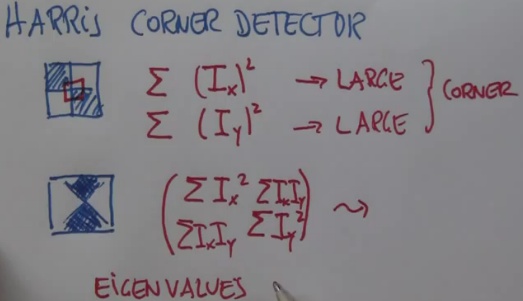 HARRIS CORNER DETECTOR
Σ (Ix)² → LARGE
Σ (Iy)² → LARGE } CORNER
(ΣIx² ΣIxIy
ΣIxIy ΣIy²) ⇝
EIGENVALUES